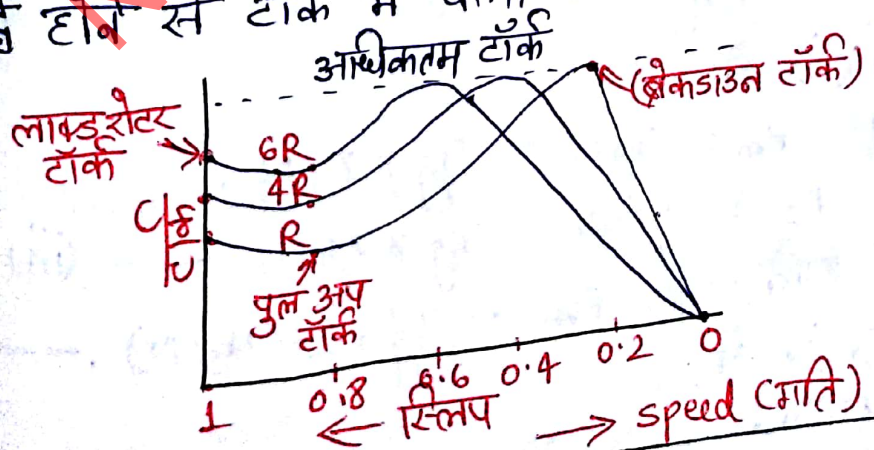 होने से टॉर्क में
अधिकतम टॉर्क
(ब्रेकडाउन टॉर्क)
लाक्ड रोटर
टॉर्क
6R
4R
R
पुल अप
टॉर्क
1 0.8 0.6 0.4 0.2 0
← स्लिप → speed (गति)